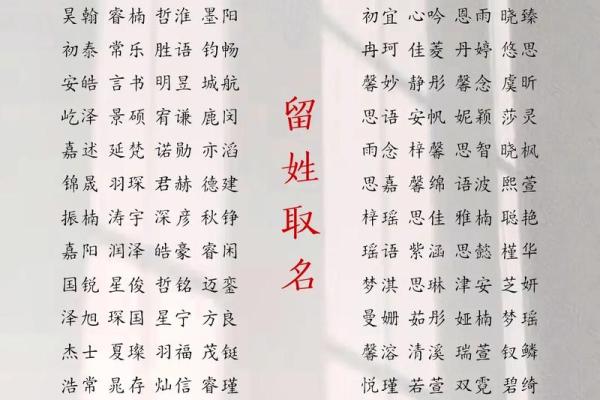 昊翰 睿楠 哲淮 墨阳
初泰 常乐 胜语 钧畅
安皓 言书 明昱 城航
屹泽 景硕 宥谦 鹿闵
嘉述 延梵 诺勋 亦滔
锦晟 羽琛 君赫 德建
振楠 涛宇 深彦 秋铮
嘉阳 润泽 皓豪 睿闲
国锐 星俊 哲铭 迈銮
泽旭 琛国 星宁 方良
杰士 夏璨 羽福 茂铤
浩常 晁存 灿信 睿瑾
留姓取名
初宜 心吟 恩雨 晓臻
冉珂 佳菱 丹婷 悠思
馨妙 静彤 馨念 虞昕
思语 安帆 妮颖 莎灵
雨念 梓馨 思智 晓枫
思嘉 馨绵 语波 熙萱
梓瑶 思佳 雅楠 聪艳
瑶语 紫涵 思懿 槿华
梦淇 思琳 津安 芝妍
曼姗 茹彤 娅楠 梦瑶
馨溶 清溪 瑞萱 钗鳞
悦瑾 若萱 双霓 碧绮